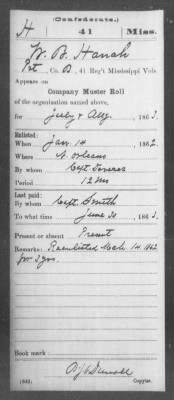 (Confederate.)
H 41 Miss.
W. B. Hanah
Pvt, Co. B, 41 Reg't Mississippi Vols.
Appears on
Company Muster Roll
of the organization named above,
for July & Aug, 1863.
Enlisted:
When Jan. 14, 1862.
Where N. Orleans
By whom Capt.
Period 12 Mo
Last paid:
By whom Capt. Smith
To what time June 30, 1863.
Present or absent Present
Remarks: Reenlisted Mch. 14 1862
for 3 yrs.
Book mark:
(642)
Copyist.